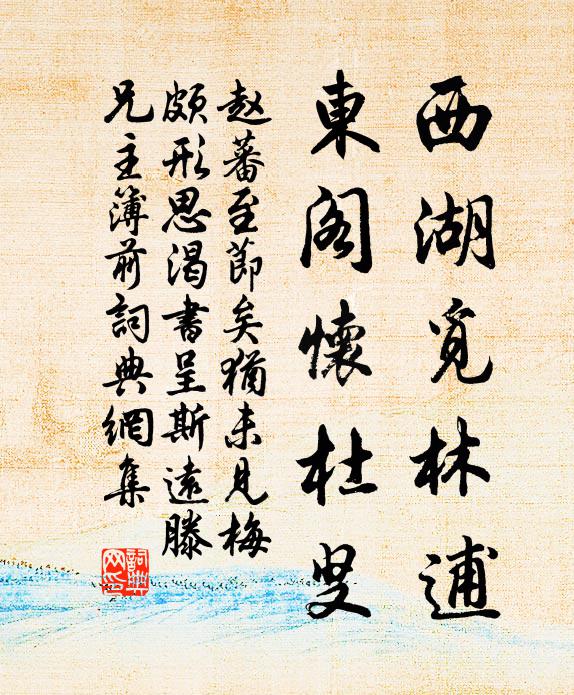 西湖覓林逋
東阁懷杜叟
赵蕃至節矣猶未見梅
頗形思渴書呈斯遠滕
兄主簿前詞典網集
詞典网印